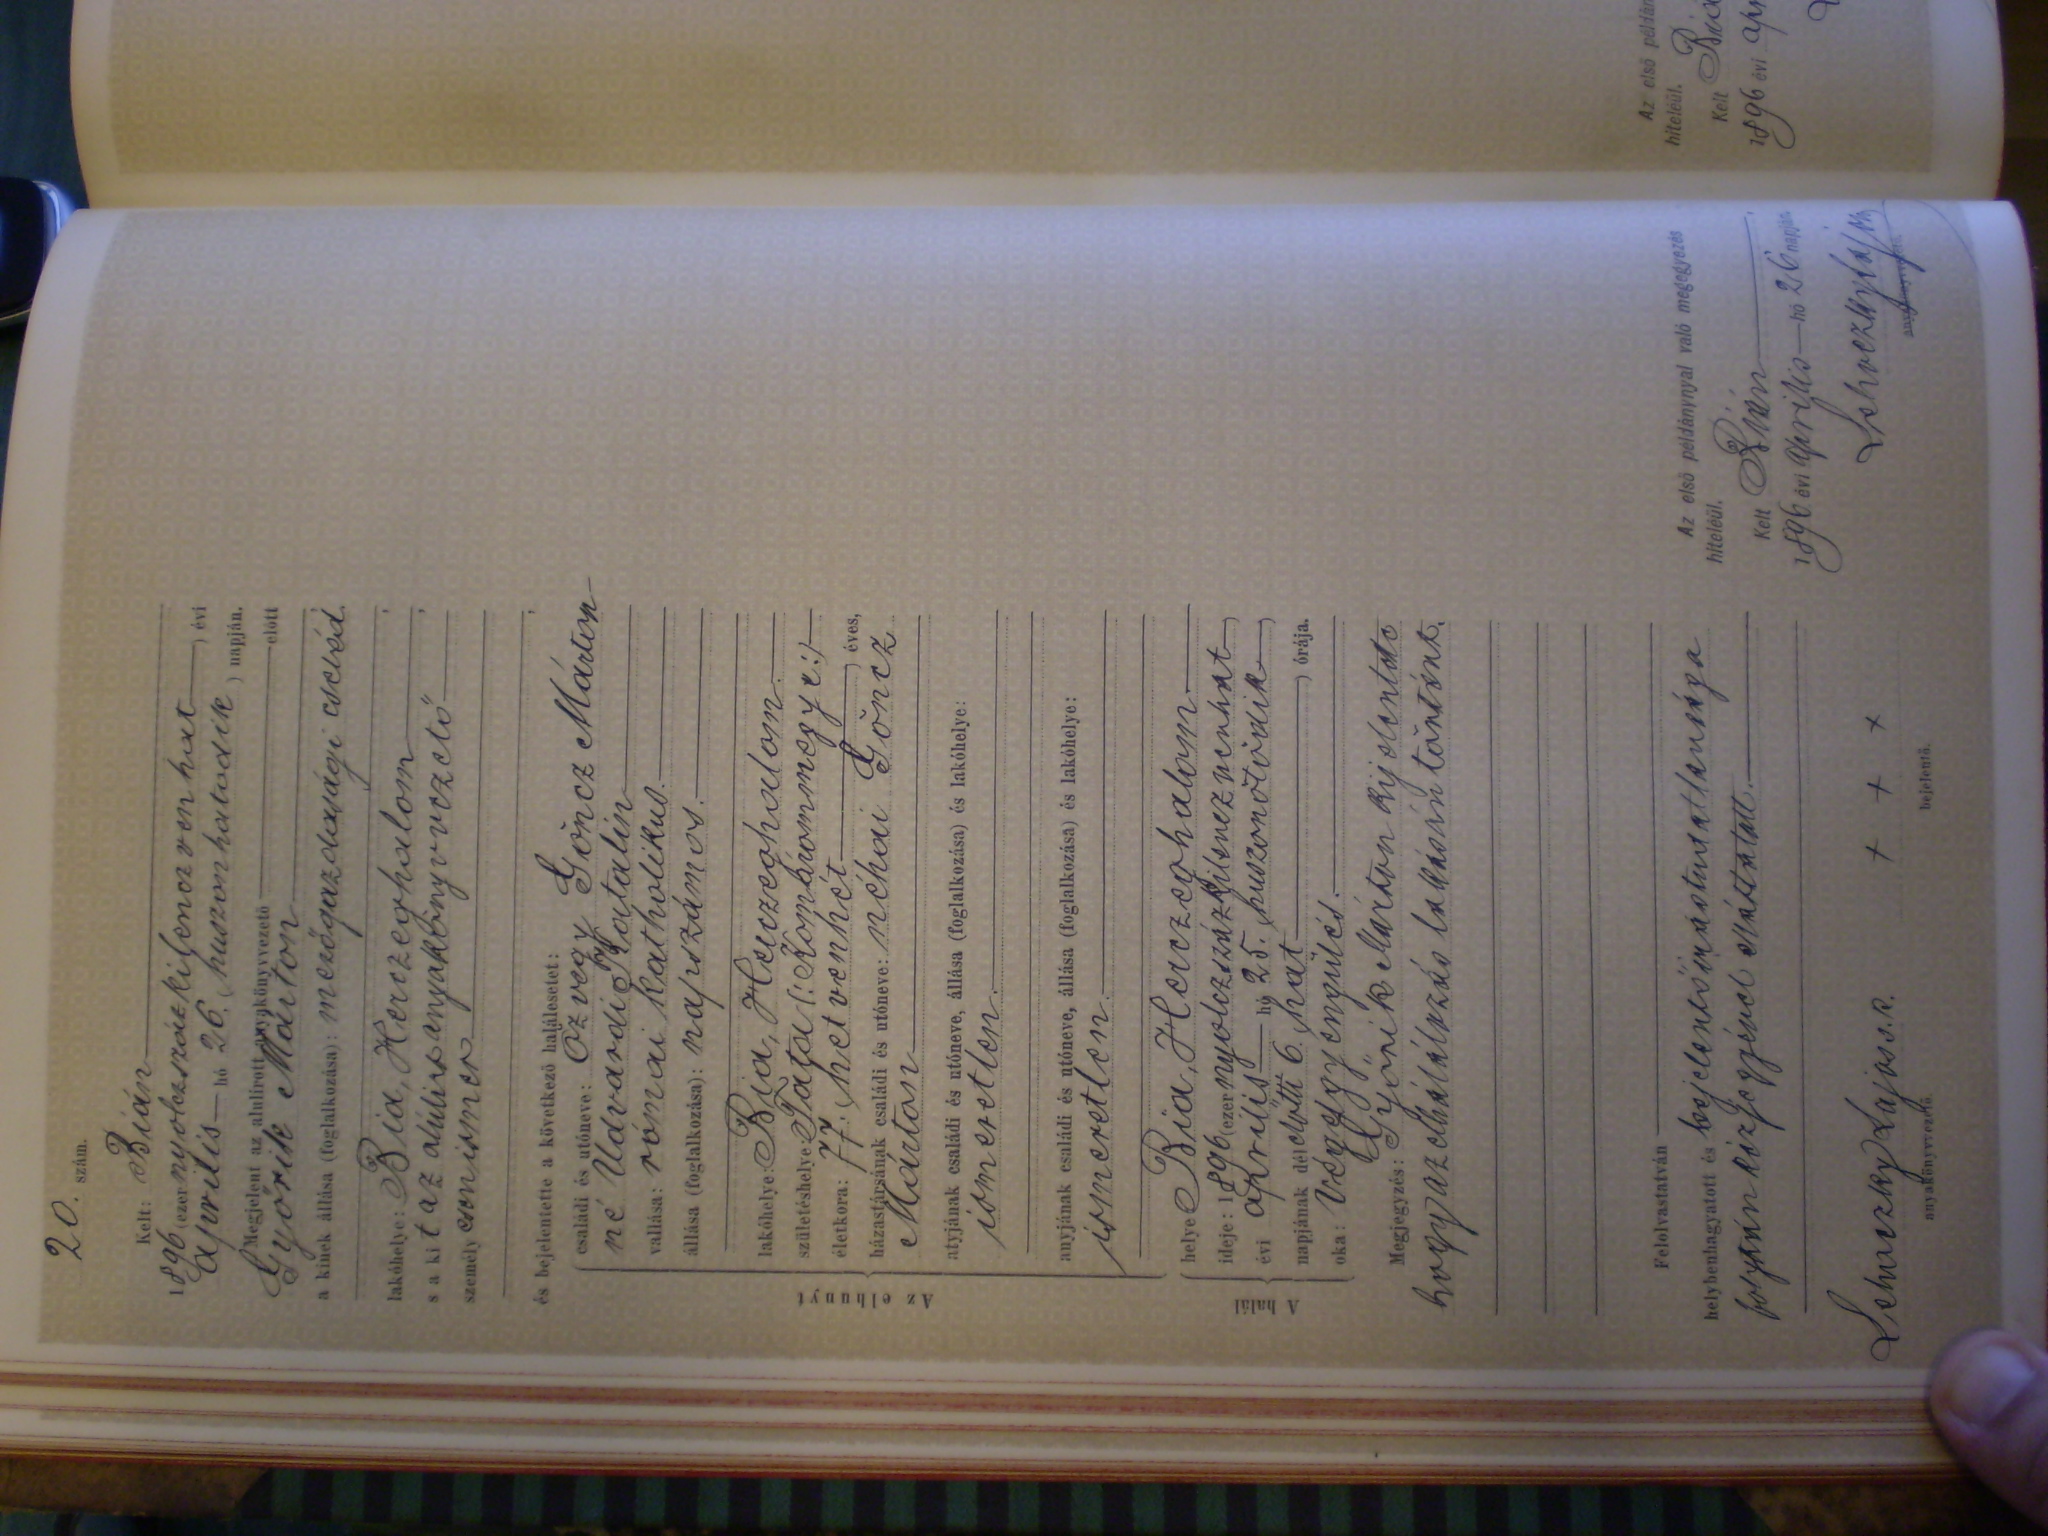 20. szám.
Kelt: Bián
1896 (ezer nyolczszázkilenczvenhat) évi
április hó 26. (huszonhatodik) napján.
Megjelent az alulirott anyakönyvvezető előtt
Györik Márton
a kinek állása (foglalkozása): mezőgazdasági cseléd
lakóhelye: Bia, Herczeghalom
s a kit az alulirt anyakönyvvezető
személyesen ismer
és bejelentette a következő halálesetet:
Az elhunyt
családi és utóneve: Özvegy Göncz Márton
né Udvardi Katalin
vallása: római katholikus.
állása (foglalkozása): napszámos.
lakóhelye: Bia, Herczeghalom.
születéshelye: Tata (: Komárommegye :)
életkora: 77 (hetvenhét) éves,
házastársának családi és utóneve: néhai Göncz
Márton
atyjának családi és utóneve, állása (foglalkozása) és lakóhelye:
ismeretlen.
anyjának családi és utóneve, állása (foglalkozása) és lakóhelye:
ismeretlen.
A halál
helye Bia, Herczeghalom.
ideje: 1896 (ezer nyolczszázkilenczvenhat)
évi április hó 25. (huszonötödik)
napjának délelőtti 6. (hat) órája.
oka: Végelgyengülés.
Megjegyzés: Györik Márton kijelentette
hogy az elhalálozás lakásán történt.
Felolvastatván
helybenhagyatott és bejelentő írástudatlansága
folytán kézjegyével elláttatott.
Lehoczky Lajos s. k.
anyakönyvvezető.
+ + +
bejelentő.
Az első példánynyal való megegyezés
hiteléül.
Kelt Bián
1896 évi április hó 26 napján
Lehoczky Lajos
Az első példán
hiteléül.
Kelt
1896 évi ápr